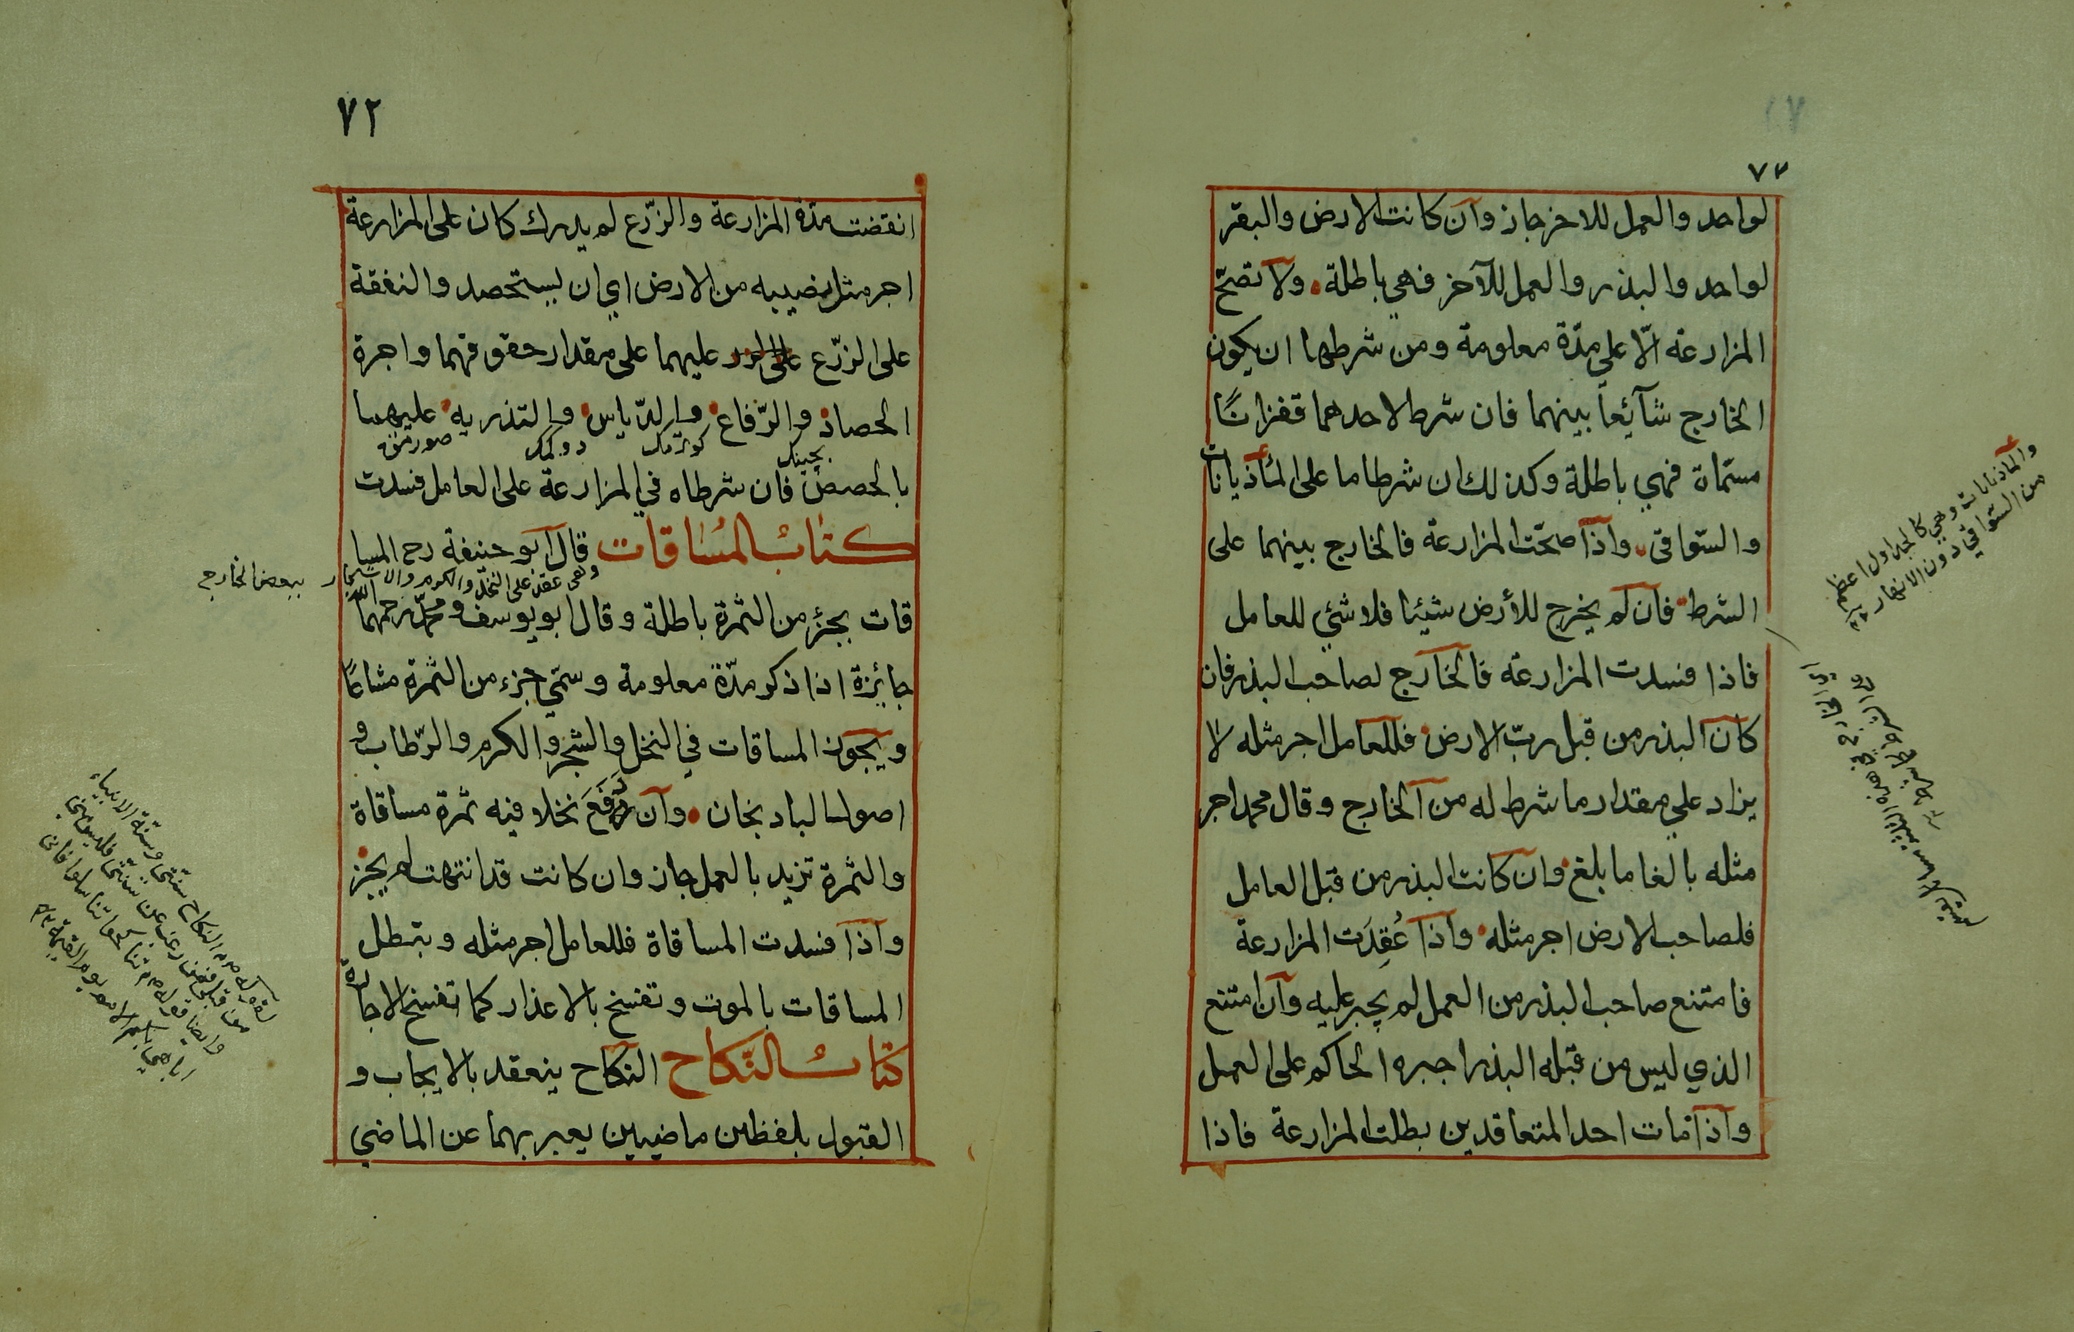 ٧٣
لواحد والعمل للاخر جاز وان كانت الارض والبقر
لواحد والبذر والعمل للآخر فهي باطلة ولا تصحّ
المزارعة الّا علي مدّة معلومة ومن شرطها ان يكون
الخارج شآئعاً بينهما فان شرط لاحدهما قفزانًا
مسمّاة فهي باطلة وكذلك ان شرطا ما على المأذيانات
والسّواقى واذا صحّت المزارعة فالخارج بينهما على
الشرط فان لم يخرج للأرض شيئا فلا شئي للعامل
فاذا فسدت المزارعة فالخارج لصاحب البذر فان
كان البذر من قبل ربّ الارض فللعامل اجر مثله لا
يزاد علي مقدار ما شرط له من الخارج وقال محمد اجر
مثله بالغا ما بلغ وان كانت البذر من قبل العامل
فلصاحب الارض اجر مثله واذا عُقِدَت المزارعة
فامتنع صاحب البذر من العمل لم يجبر عليه وان امتنع
الذي ليس من قبله البذر اجبره الحاكم على العمل
واذا مات احد المتعاقدين بطلت المزارعة فاذا
والماذيانات وهي كالجداول اعظم
من السّواقي دون الانهار
٧٢
انقضت مدّة المزارعة والزّرع لم يدرك كان على المزارعة
اجر مثل نصيبه من الارض الي ان يستحصد والنفقة
على الزرّع عليهما على مقدار حقوقهما واجرة
الحصاد والرّفاع والدّياس والتذريه عليهما
بالحصص فان شرطاه في المزارعة على العامل فسدت
كتاب المساقات قال ابو حنيفة رح المسا
وهي عقد على النخل والكروم والاشجار ببعض الخارج
قات بجزء من الثمرة باطلة وقال ابو يوسف ومحمّد رحمهما الله
جائزة اذا ذكر مدّة معلومة وسمّي جزء من الثمرة مشاعًا
ويجوز المساقات في النخل والشجر والكرم والرّطاب و
اصول الباد نجان وان دَفَعَ نخلا فيه ثمرة مساقاة
والثمرة تزيد بالعمل جاز وان كانت قد انتهت لم يجز
واذا فسدت المساقاة فللعامل اجر مثله وبتبطل
المساقات بالموت وتفسخ بالاعذار كما تفسخ الاجارة
كتاب النّكاح النكاح ينعقد بالايجاب و
القبول بلفظين ماضيين يعبر بهما عن الماضي
لقوله النكاح سنتى وسنّة الانبياء
من قبلى فمن رغب عن سنتى فليس منى
وايضا قوله تناكحوا تناسلوا فانى
اباهي بكم الامم يوم القيمة